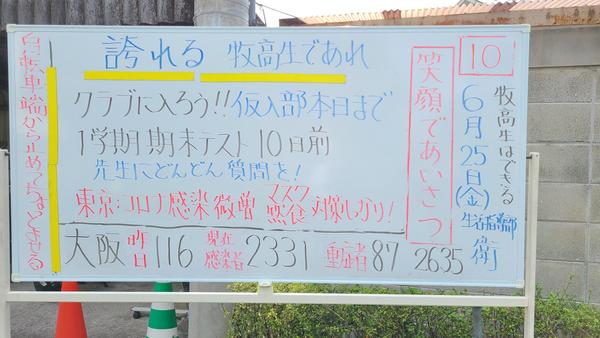 10
牧高生はできる
6月25日(金)
生活指導部
衛
笑顔であいさつ
誇れる 牧高生であれ
クラブに入ろう!!仮入部本日まで
1学期期末テスト10日前
先生にどんどん質問を!
東京:コロナ感染微増 マスク 黙食 対策しっかり!
大阪 昨日 116 現在感染者 2331 重症者 87 2635
自転車端から止めてちょとさせる